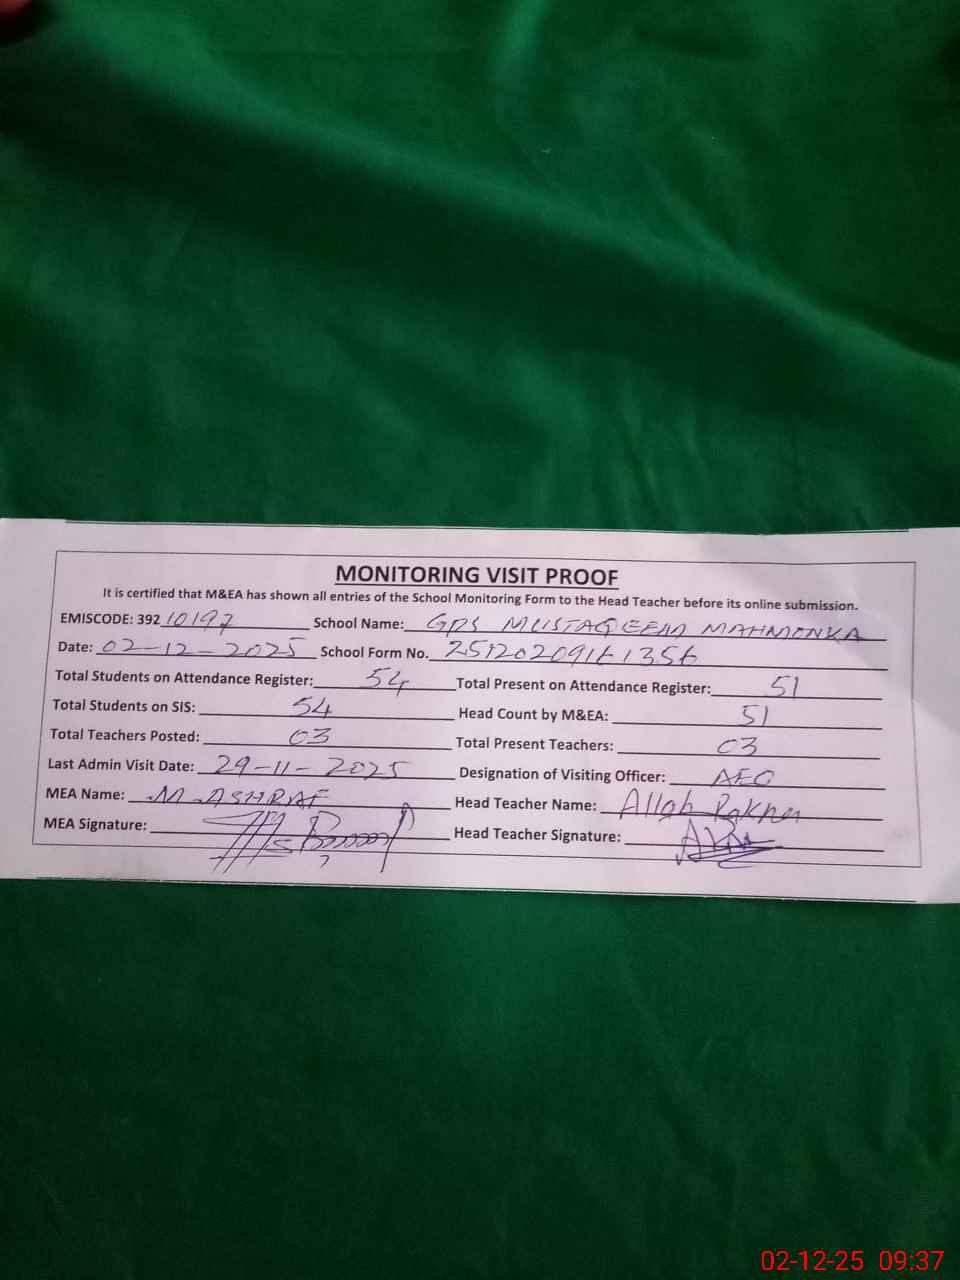 MONITORING VISIT PROOF
It is certified that M&EA has shown all entries of the School Monitoring Form to the Head Teacher before its online submission.
EMISCODE: 392 10197 School Name: GPS MUSTAQEEM MAHMONKA
Date: 02-12-2025 School Form No.
Total Students on Attendance Register: 54 Total Present on Attendance Register: 51
Total Students on SIS: 54 Head Count by M&EA: 51
Total Teachers Posted: 03 Total Present Teachers: 03
Last Admin Visit Date: 29-11-2025 Designation of Visiting Officer: AEO
MEA Name: M.ASHRAF Head Teacher Name: Allah
MEA Signature: Head Teacher Signature:
02-12-25 09:37